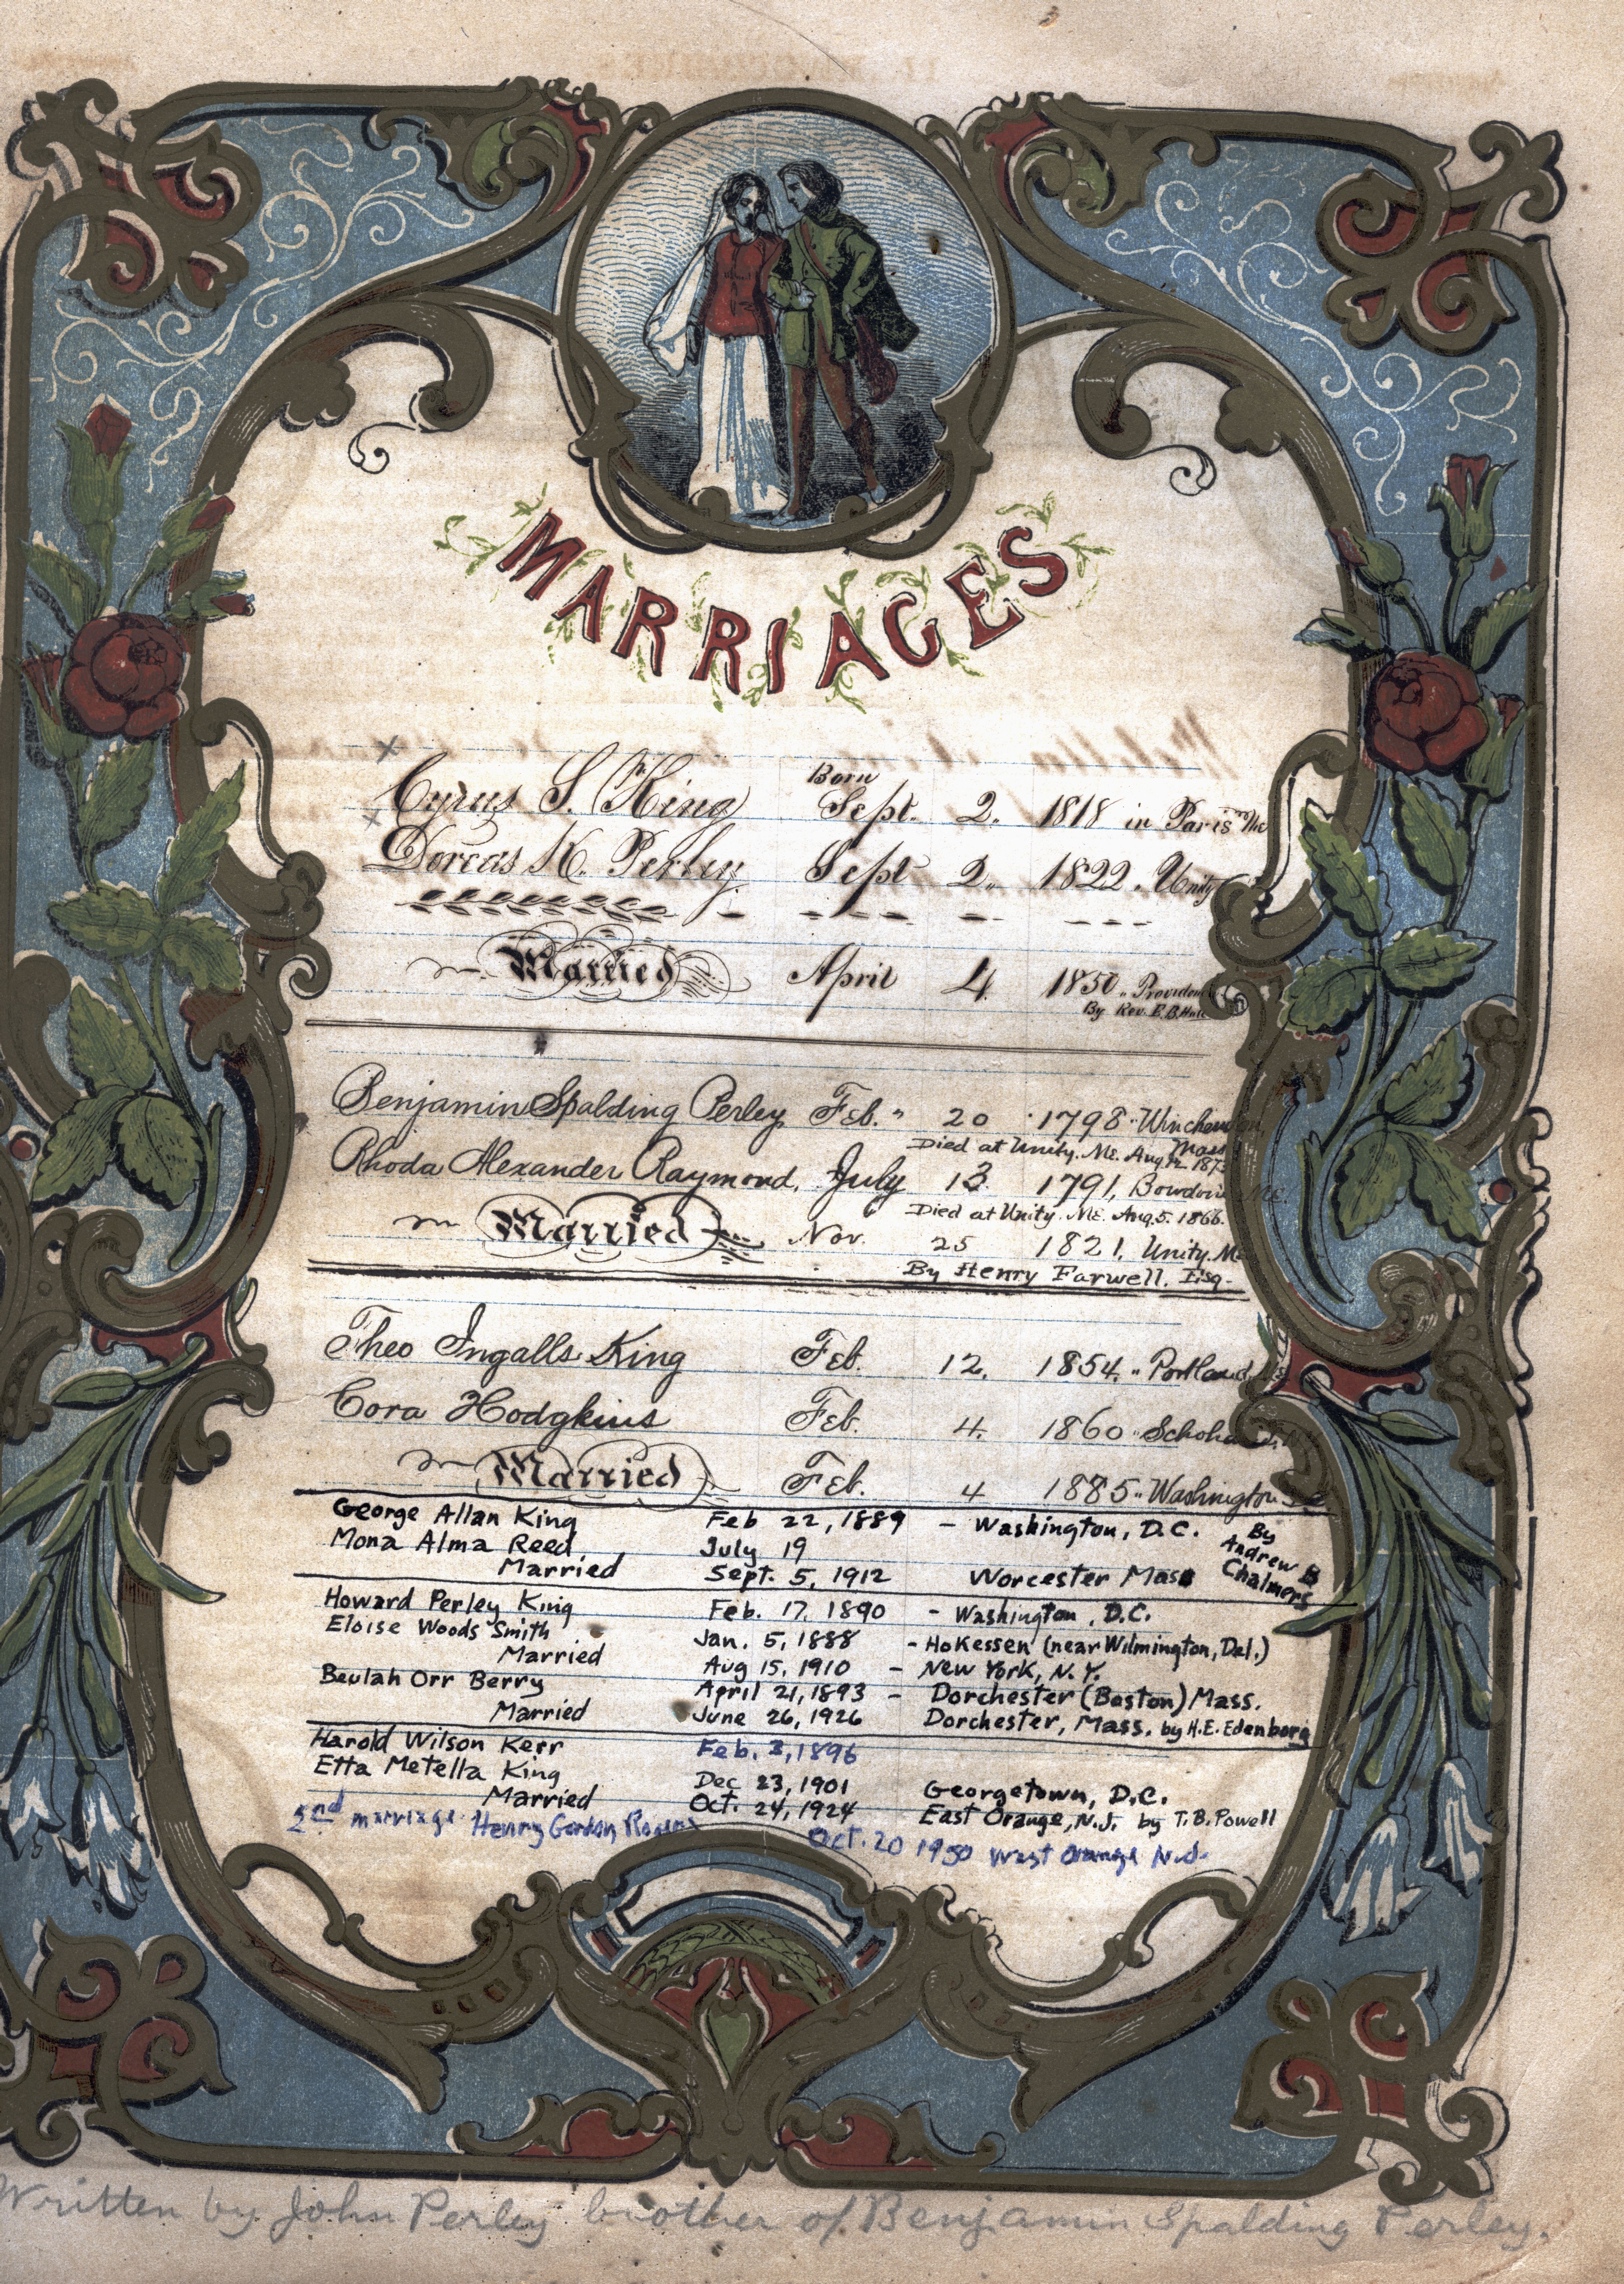 MARRIAGES
Born
Cyrus S. King Sept. 2. 1818 in Paris Me
Dorcas K. Perley Sept 2. 1822. Unity
Married April 4 1850
By Rev. E.B.
Benjamin Spalding Perley Feb. 20 1798
Mass
Died at Unity. Me. Aug.
Rhoda Alexander Raymond. July 13 1791, Me.
Died at Unity. Me. Aug. 5. 1866.
Married Nov. 25 1821, Unity. Me
By Henry Farwell. Esq.
Theo Ingalls King Feb. 12. 1854. Portland, Me
Cora Hodgkins Feb. 4. 1860
Married Feb. 4 1885 Washington
George Allan King Feb 22, 1889 - Washington, D.C. By
Mona Alma Reed July 19 Andrew B
Married Sept. 5, 1912 Worcester Mass Chalmers
Howard Perley King Feb. 17, 1890 - Washington, D.C.
Eloise Woods Smith Jan. 5, 1888 - Hokessen (near Wilmington, Del.)
Married Aug 15, 1910 - New York, N.Y.
Beulah Orr Berry April 21, 1893 - Dorchester (Boston) Mass.
Married June 26, 1926 Dorchester, Mass. by H.E. Edenborg
Harold Wilson Kerr Feb. 3, 1896
Etta Metella King Dec 23, 1901 Georgetown, D.C.
Married Oct. 24, 1924 East Orange, N.J. by T.B. Powell
2nd marriage Henry Gordon Rogers Oct. 20 1950 West Orange N.J.
Written by John Perley brother of Benjamin Spalding Perley.